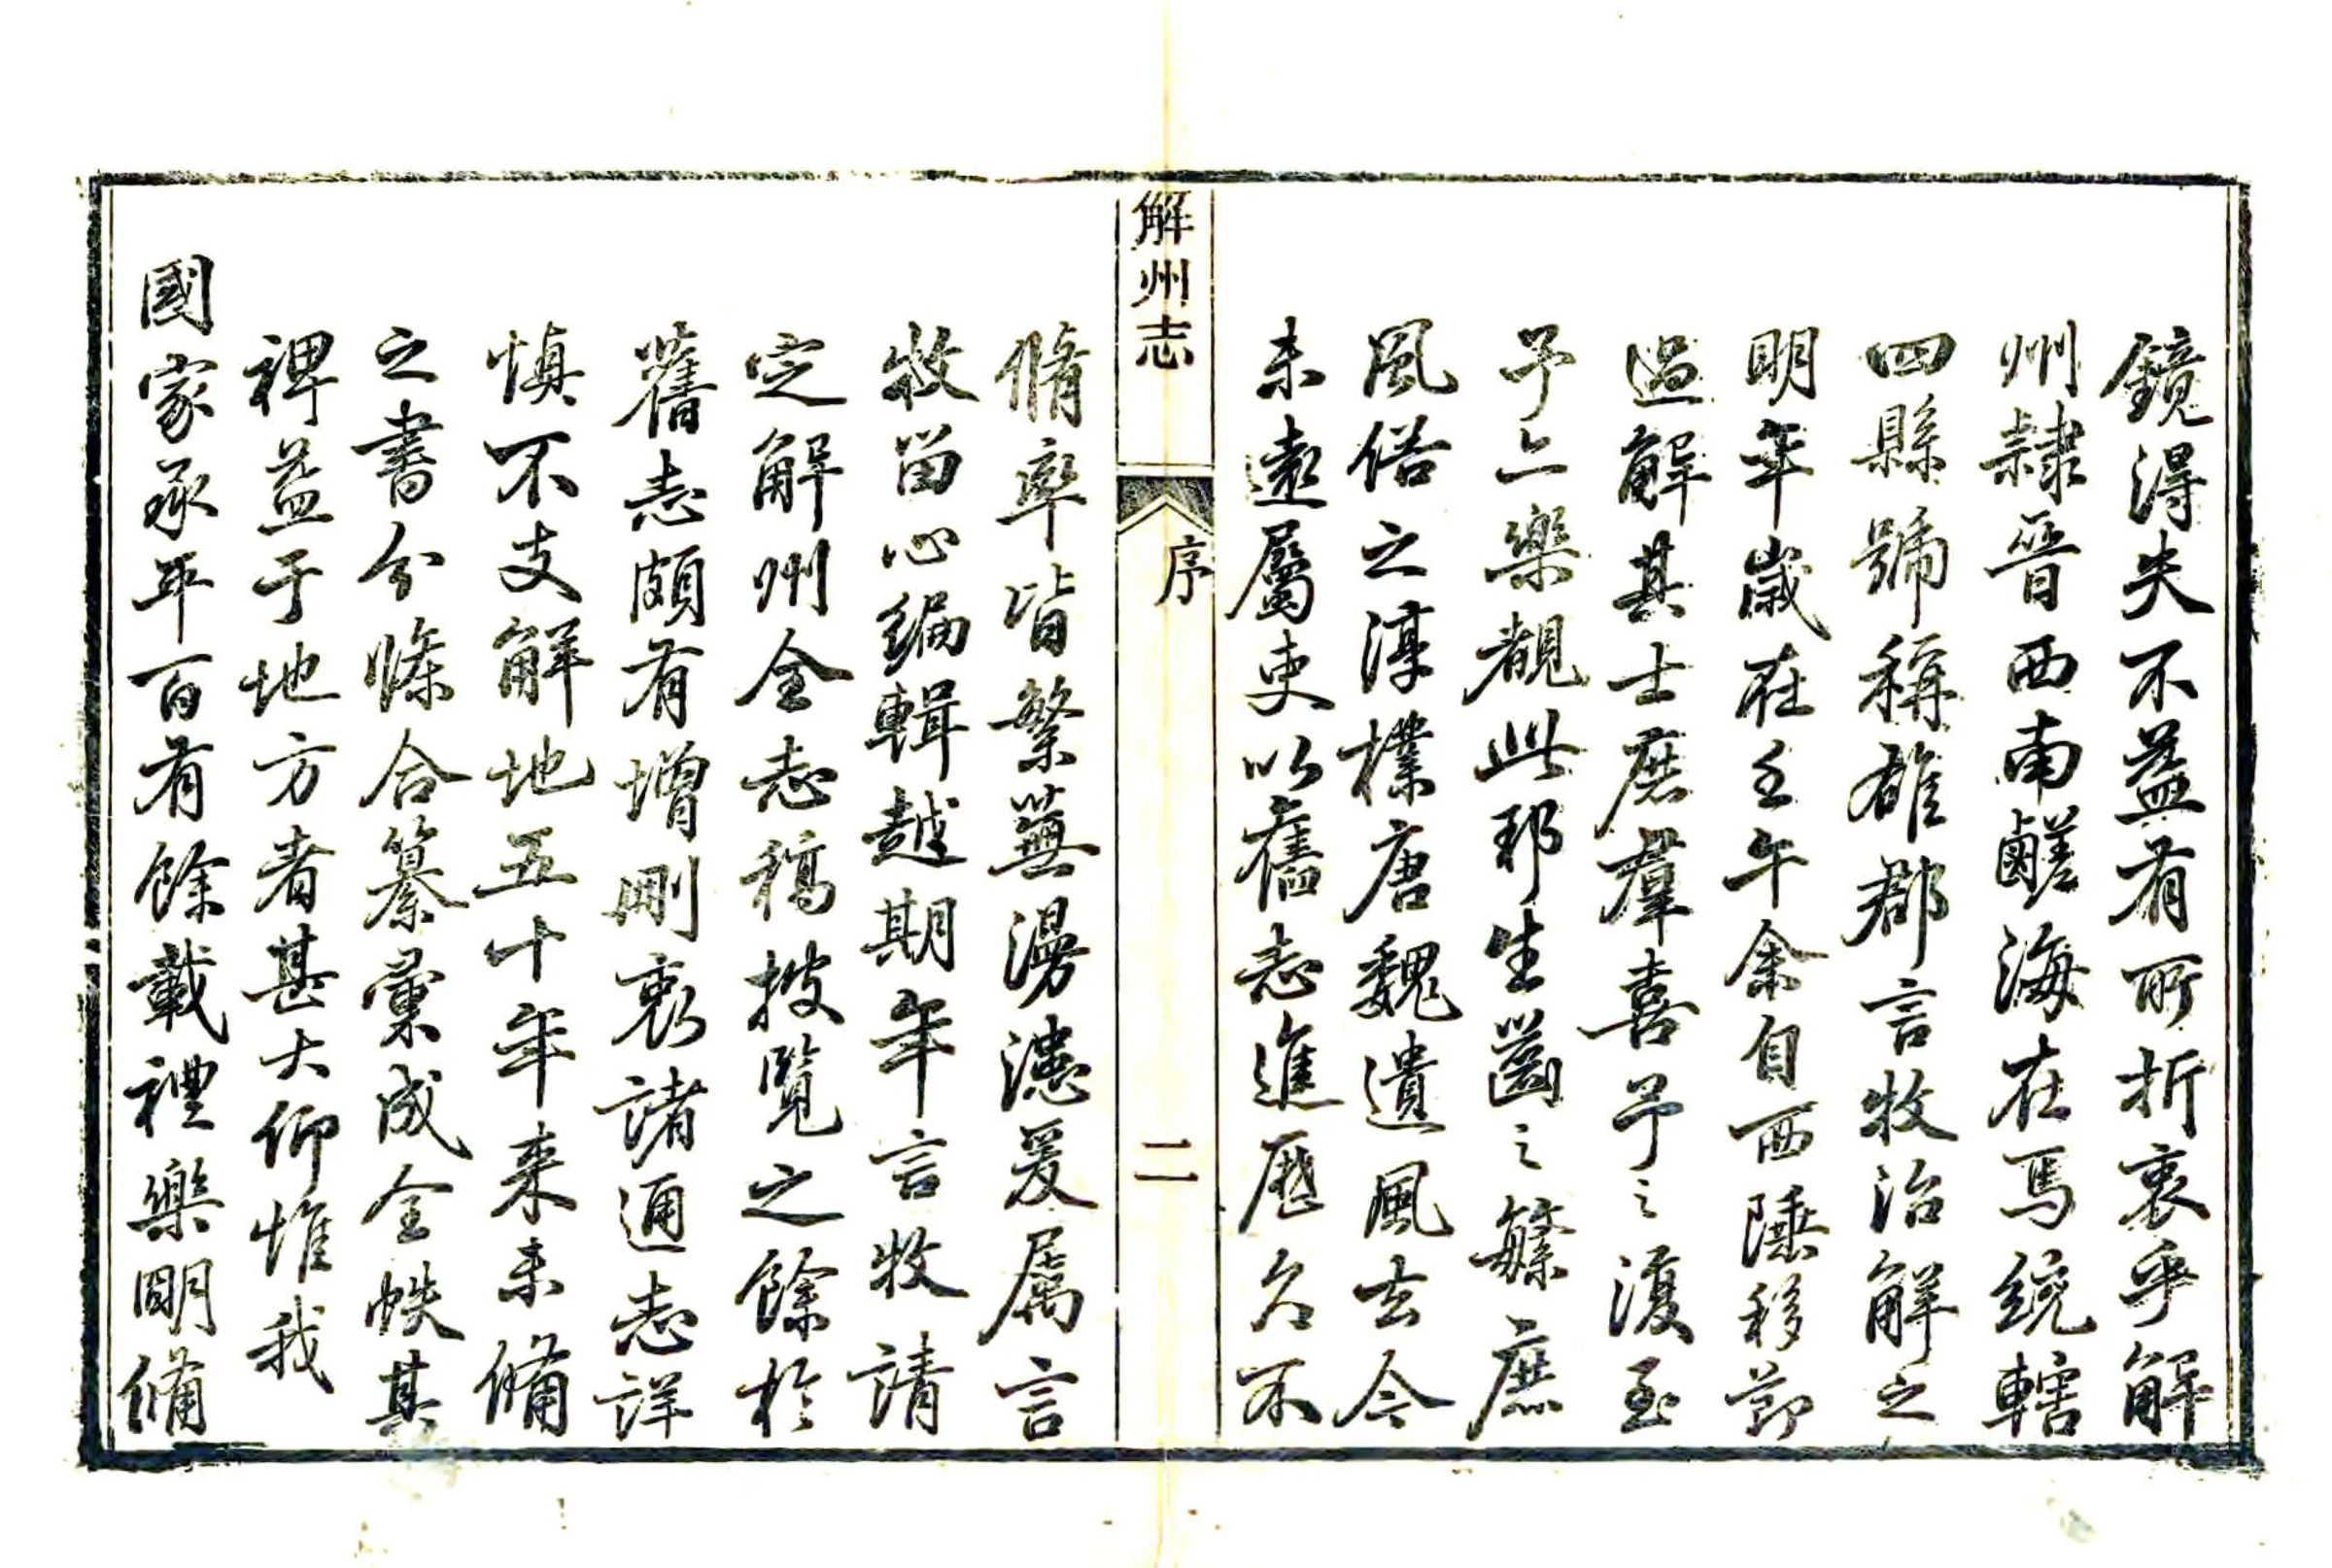 鏡淂失不益有所折衷乎解
州隷晉西南鹾海在焉統轄
四縣號稱雄郡言牧治解之
明年歲在壬午余自西陲移節
過解其士庶羣喜予之復至
予亦樂覩此邦生齒之繁庶
風俗之淳樸唐魏遺風去今
未遠屬吏以舊志進歷久不
解州志
序
二
脩率皆繁蕪漫漶爰屬言
牧留心編輯越期年言牧請
定解州全志稿披覽之餘於
舊志頗有增刪衷諸通志詳
慎不支解地五十年來未脩
之書分條合纂彙成全帙其
裨益于地方者甚大仰惟我
國家承平百有餘載禮樂明備